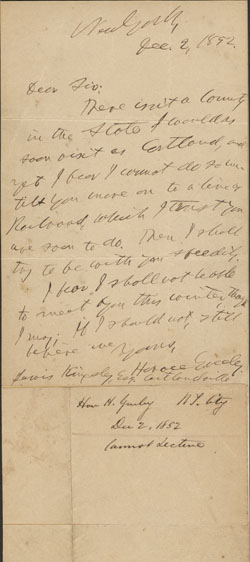 New York,
Dec. 2, 1852.
Dear Sir:
There isn't a County
in the State I would as
soon visit as Cortland, and
yet I fear I cannot do so un-
till you move on to a line of
Railroad, which I trust you
are soon to do. Then I shall
try to be with you speedily.
I fear I shall not be able
to meet you this winter, though
I may. If I should not, still
believe me,
Yours,
Horace Greeley.
Lewis Kingsley, Esq. Cortlandville
Hon H. Greeley N.Y. City
Dec 2, 1852
Cannot Lecture